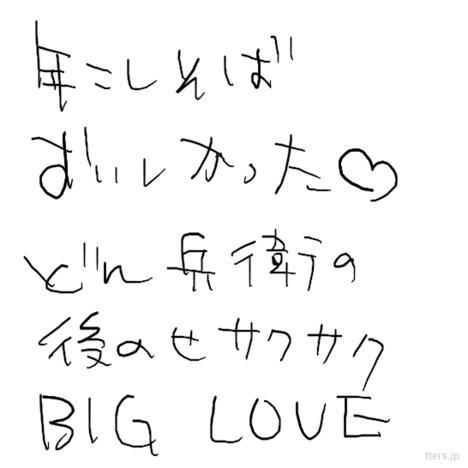 年こしそば
おいしかった♡
どん兵衛の
後のせサクサク
BIG LOVE
tters.jp